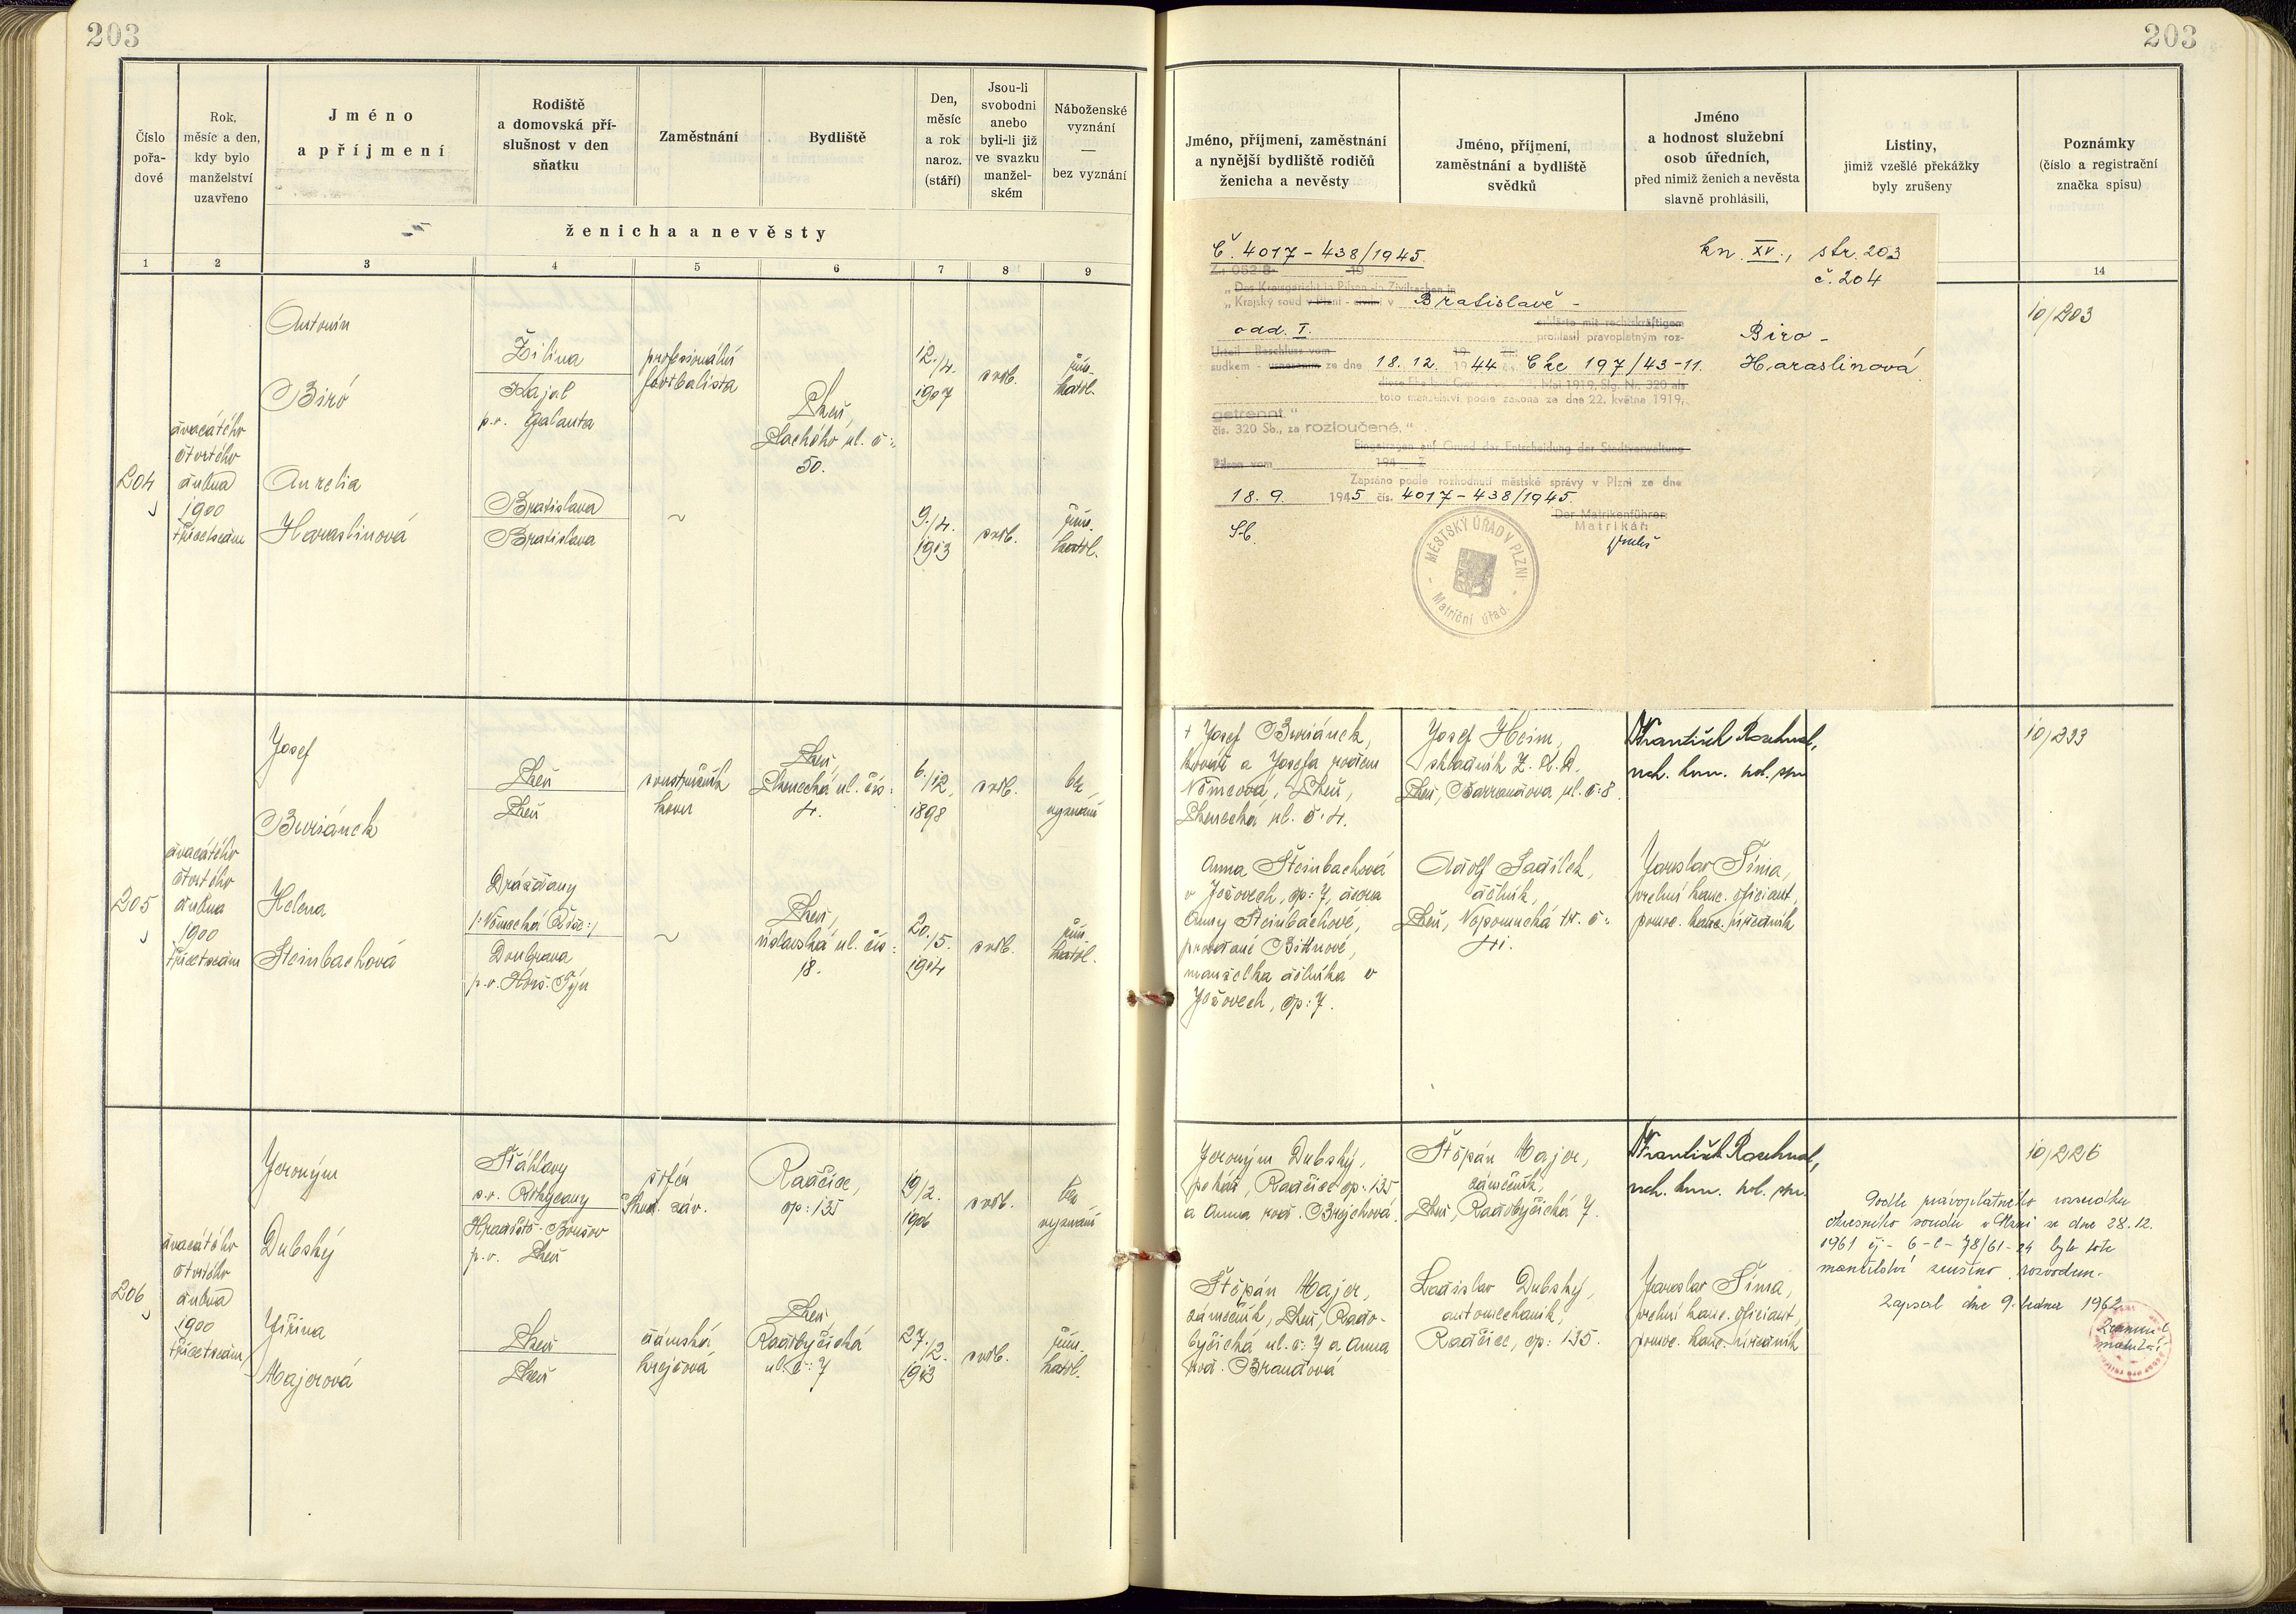 203
203
Číslo
pořa-
dové
Rok,
měsíc a den,
kdy bylo
manželství
uzavřeno
Jméno
a příjmení
Rodiště
a domovská pří-
slušnost v den
sňatku
Zaměstnání
Bydliště
Den,
měsíc
a rok
naroz.
(stáří)
Jsou-li
svobodni
anebo
byli-li již
ve svazku
manžel-
ském
Náboženské
vyznání
—
bez vyznání
ženicha a nevěsty
1 2 3 4 5 6 7 8 9
Jméno, příjmení, zaměstnání
a nynější bydliště rodičů
ženicha a nevěsty
Jméno, příjmení,
zaměstnání a bydliště
svědků
Jméno
a hodnost služební
osob úředních,
před nimiž ženich a nevěsta
slavně prohlásili,
Listiny,
jimiž vzešlé překážky
byly zrušeny
Poznámky
(číslo a registrační
značka spisu)
14
204
dvacátého
čtvrtého
dubna
1900
třicetsedm
Antonín
Biró
Aurelia
Haraslinová
Žilina
Kajal
p.o. Galanta
Bratislava
Bratislava
profesionální
footbalista
~
Plzeň,
Sachého ul. č:
50.
12./4.
1907
9./4.
1913
svob.
svob.
řím.
katol.
řím.
katol.
10/203
Č. 4017-438/1945.
kn. XV., str. 203
č. 204
"Das Kreisgericht in Pilsen in Zivilsachen in
"Krajský soud v Plzni - civilní v Bratislavě -
odd. I.
erklärte mit rechtskräftigem
prohlásil pravoplatným roz-
Biro -
Urteil - Beschluss vom
sudkem - usnesením ze dne 18.12. 1944 Ck 197/43-11.
Haraslinová
toto manželství podle zákona ze dne 22. května 1919,
getrennt."
čís. 320 Sb., za rozloučené."
Eingetragen auf Grund der Entscheidung der Stadtverwaltung
Pilsen vom 194 Z
Zapsáno podle rozhodnutí městské správy v Plzni ze dne
18.9. 1945 čís. 4017-438/1945.
Der Matrikenführer:
Matrikář:
MĚSTSKÝ ÚŘAD V PLZNI
Matriční úřad.
205
dvacátého
čtvrtého
dubna
1900
třicetsedm
Josef
Buriánek
Helena
Steinbachová
Plzeň
Plzeň
Drážďany
/:Německá Říše:/
Doubrava
p.o. Horš. Týn
soustružník
kovu
~
Plzeň,
Plzenecká ul. čís:
4.
Plzeň,
úslavská ul. čís:
18.
6./12.
1898
20./5.
1914
svob.
svob.
bez
vyznání
řím.
katol.
+ Josef Buriánek,
kovář a Josefa rozená
Němcová, Plzeň,
Plzenecká ul. č. 4.
Anna Steinbachová
v Ježovech, čp: 7, dcera
Anny Steinbachové,
provdané Bittnové,
manželka dělníka v
Ježovech, čp: 7.
Josef Heim,
skladník Z.
Plzeň, Barrandova ul. č: 8.
Adolf Sadílek,
dělník,
Plzeň, Nepomucká tř. č:
41.
František Rozhnal,
Jaroslav Šíma,
vrchní kanc. oficiant,
pomoc. kanc. úředník
10/233
206
dvacátého
čtvrtého
dubna
1900
třicetsedm
Jeroným
Dubský
Jiřina
Majerová
Šťáhlavy
s.o. Rokycany
Hradiště-Bručov
p.o. Plzeň
Plzeň
Plzeň
šofér
Škod. záv.
dámská
krejčová
Radčice,
čp: 135
Plzeň,
Radobyčická
ul. č: 7
19./2.
1906
27./2.
1913
svob.
svob.
bez
vyznání
řím.
katol.
Jeroným Dubský,
pekař, Radčice čp: 135
a Anna, roz. Brejchová.
Štěpán Majer,
zámečník, Plzeň, Rado-
byčická ul. č: 7 a Anna
roz. Brandová
Štěpán Majer,
zámečník,
Plzeň, Radobyčická 7.
Ladislav Dubský,
automechanik,
Radčice, čp: 135.
František Rozhnal,
Jaroslav Šíma,
vrchní kanc. oficiant,
pomoc. kanc. úředník
Podle pravoplatného rozsudku
okresního soudu v Plzni ze dne 28.12.
1961 čj - 6-C-78/61-24 bylo toto
manželství zrušeno rozvodem.
Zapsal dne 9. ledna 1962
10/226